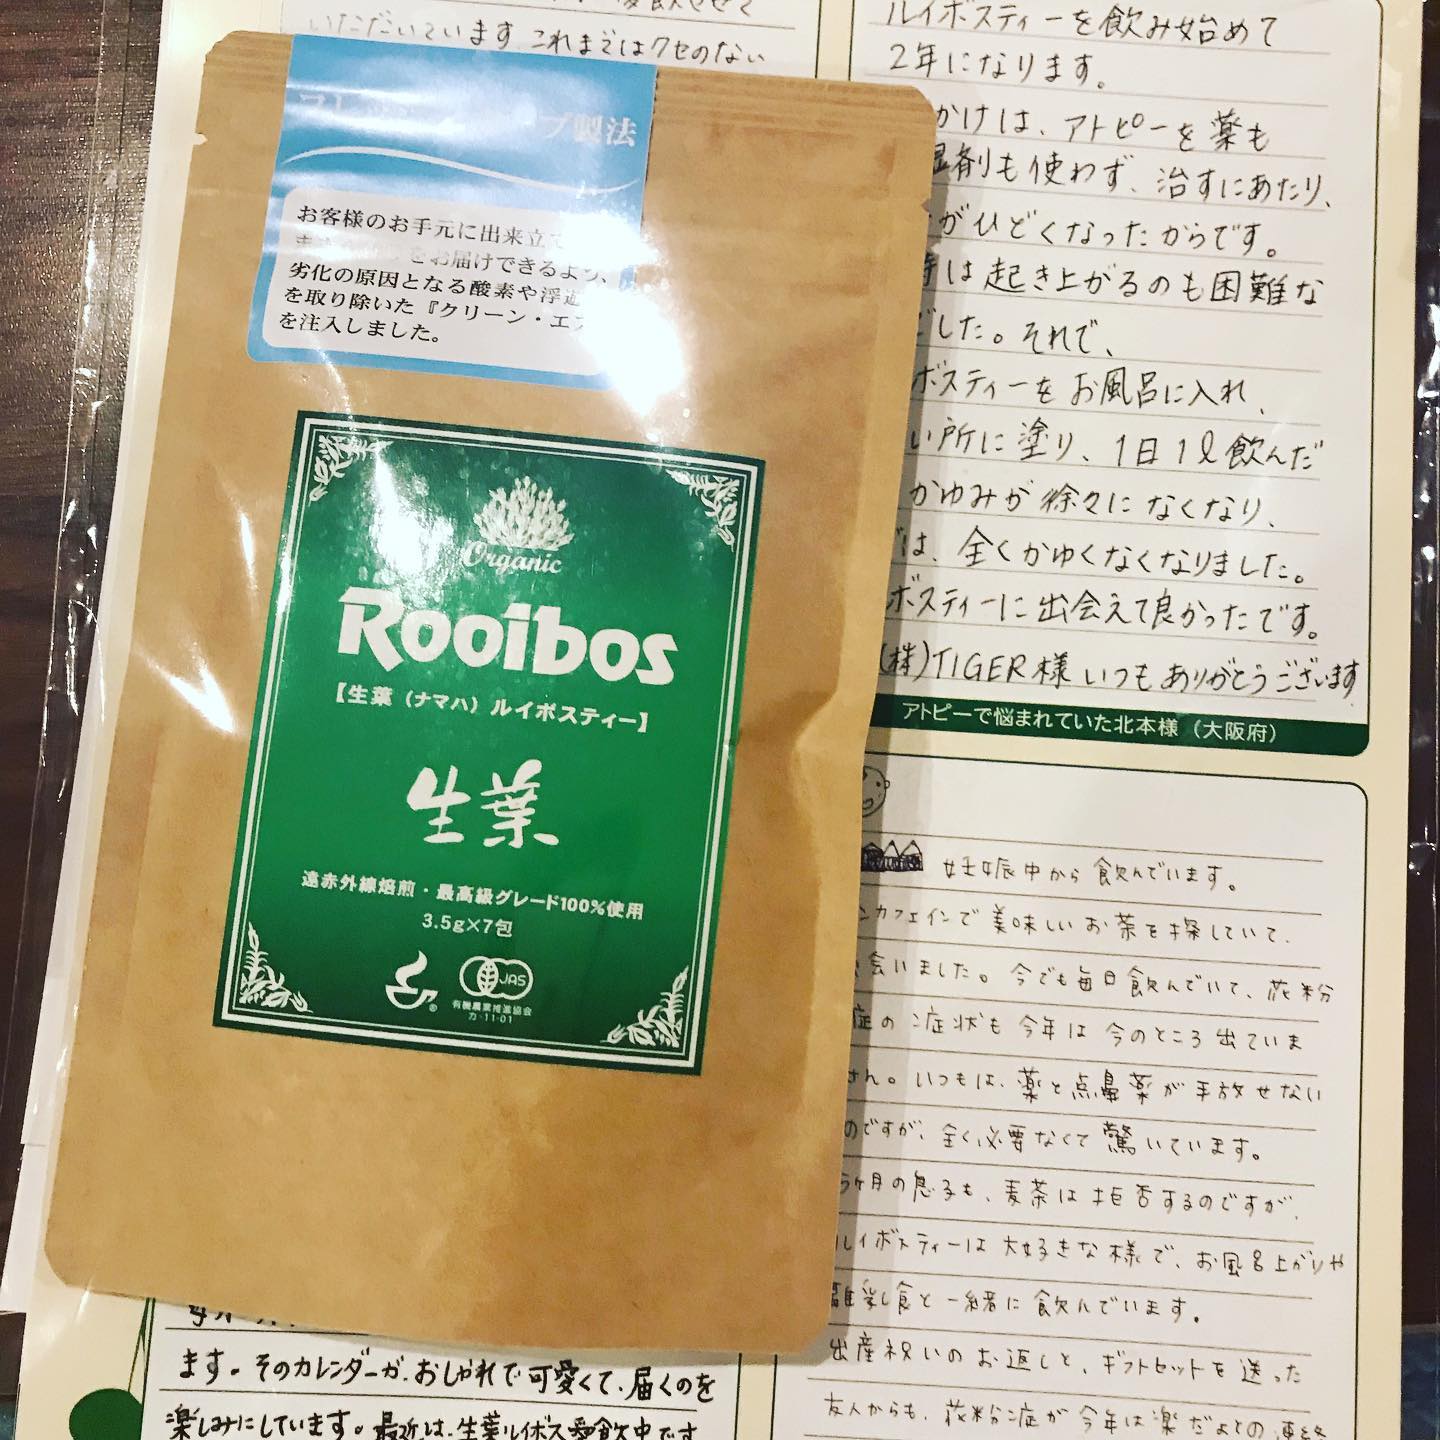 いただいています。これまではクセのない
製法
お客様のお手元に出来立て
をお届けできるよう、
劣化の原因となる酸素や浮遊
を取り除いた『クリーン・エア
を注入しました。
Organic
Rooibos
【生葉（ナマハ）ルイボスティー】
生葉
遠赤外線焙煎・最高級グレード100%使用
3.5g×7包
JAS
有機農業推進協会
カ-11-01
ます。そのカレンダーが、おしゃれで可愛くて、届くのを
楽しみにしています。最近は、生葉ルイボス愛飲中です
ルイボスティーを飲み始めて
2年になります。
かけは、アトピーを薬も
剤も使わず、治すにあたり、
がひどくなったからです。
時は起き上がるのも困難な
でした。それで、
ボスティーをお風呂に入れ、
い所に塗り、1日1ℓ飲んだ
かゆみが徐々になくなり、
では、全くかゆくなくなりました。
ボスティーに出会えて良かったです。
(株)TIGER様いつもありがとうございます
アトピーで悩まれていた北本様（大阪府）
妊娠中から飲んでいます。
ンカフェインで美味しいお茶を探していて、
会いました。今でも毎日飲んでいて、花粉
症の症状も今年は今のところ出ていま
せん。いつもは、薬と点鼻薬が手放せない
のですが、全く必要なくて驚いています。
ヶ月の息子も、麦茶は拒否するのですが、
ルイボスティーは大好きな様で、お風呂上がりや
離乳食と一緒に飲んでいます。
出産祝いのお返しと、ギフトセットを送った
友人からも、花粉症が今年は楽だよとの連絡